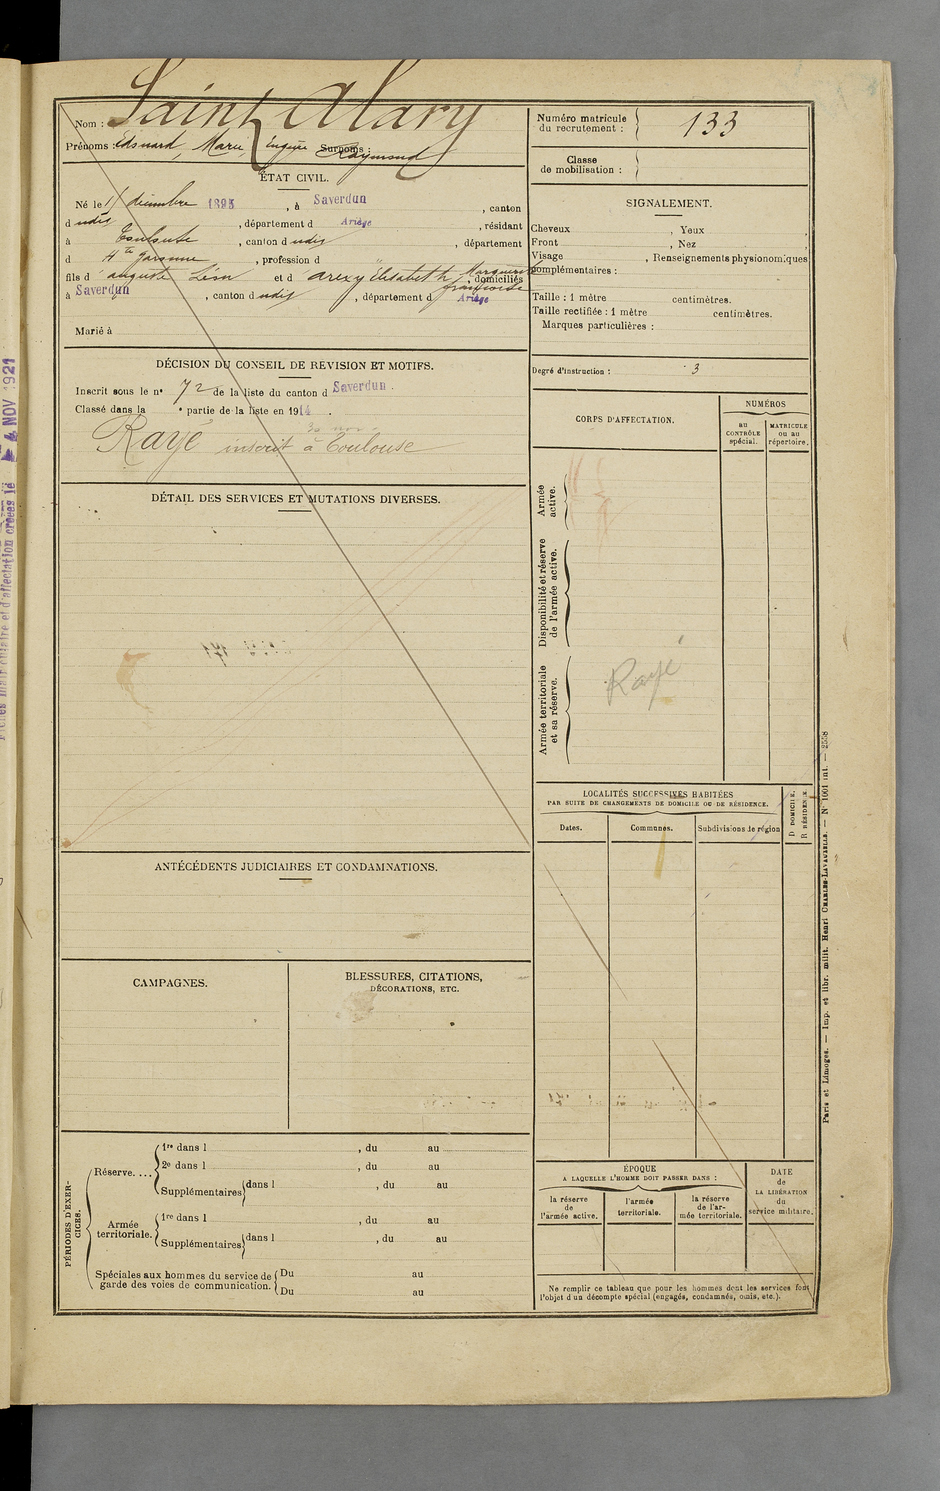 Nom : Saint Alary
Prénoms : Edouard, Marie, Eugène Surnoms : Raymond
ÉTAT CIVIL.
Né le 11 décembre 1893, à Saverdun, canton
d udis, département d Ariège, résidant
à Toulouse, canton d udis, département
d Hte Garonne, profession d "
fils d' auguste Léon et d' arexy Elisabeth Marguerite françoise, domiciliés
à Saverdun, canton d udis, département d Ariège
Marié à
DÉCISION DU CONSEIL DE REVISION ET MOTIFS.
Inscrit sous le n° 72 de la liste du canton d Saverdun.
Classé dans la e partie de la liste en 1914.
Rayé inscrit à Toulouse
DÉTAIL DES SERVICES ET MUTATIONS DIVERSES.
ANTÉCÉDENTS JUDICIAIRES ET CONDAMNATIONS.
CAMPAGNES.
BLESSURES, CITATIONS,
DÉCORATIONS, ETC.
PÉRIODES D'EXER-
CICES.
Réserve....
1re dans l , du au
2e dans l , du au
Supplémentaires dans l , du au
Armée
territoriale.
1re dans l , du au
Supplémentaires dans l , du au
Spéciales aux hommes du service de
garde des voies de communication.
Du au
Du au
Numéro matricule
du recrutement : 133
Classe
de mobilisation :
SIGNALEMENT.
Cheveux , Yeux
Front , Nez
Visage , Renseignements physionomiques
complémentaires :
Taille : 1 mètre centimètres.
Taille rectifiée : 1 mètre centimètres.
Marques particulières :
Degré d'instruction : 3
CORPS D'AFFECTATION.
NUMÉROS
au
CONTRÔLE
spécial.
MATRICULE
ou au
répertoire.
Armée
active.
Disponibilité et réserve
de l'armée active.
Armée territoriale
et sa réserve.
Rayé
LOCALITÉS SUCCESSIVES HABITÉES
PAR SUITE DE CHANGEMENTS DE DOMICILE OU DE RÉSIDENCE.
D DOMICILE.
R RÉSIDENCE.
Dates.
Communes.
Subdivisions de région
ÉPOQUE
A LAQUELLE L'HOMME DOIT PASSER DANS :
la réserve
de
l'armée active.
l'armée
territoriale.
la réserve
de l'ar-
mée territoriale.
DATE
de
LA LIBÉRATION
du
service militaire.
Ne remplir ce tableau que pour les hommes dont les services font
l'objet d'un décompte spécial (engagés, condamnés, omis, etc.).
Paris et Limoges. — Imp. et libr. milit. Henri CHARLES-LAVAUZELLE. — N° 1001 int. — 2558
matriculaire et d'affectation créées le 4 NOV 1921